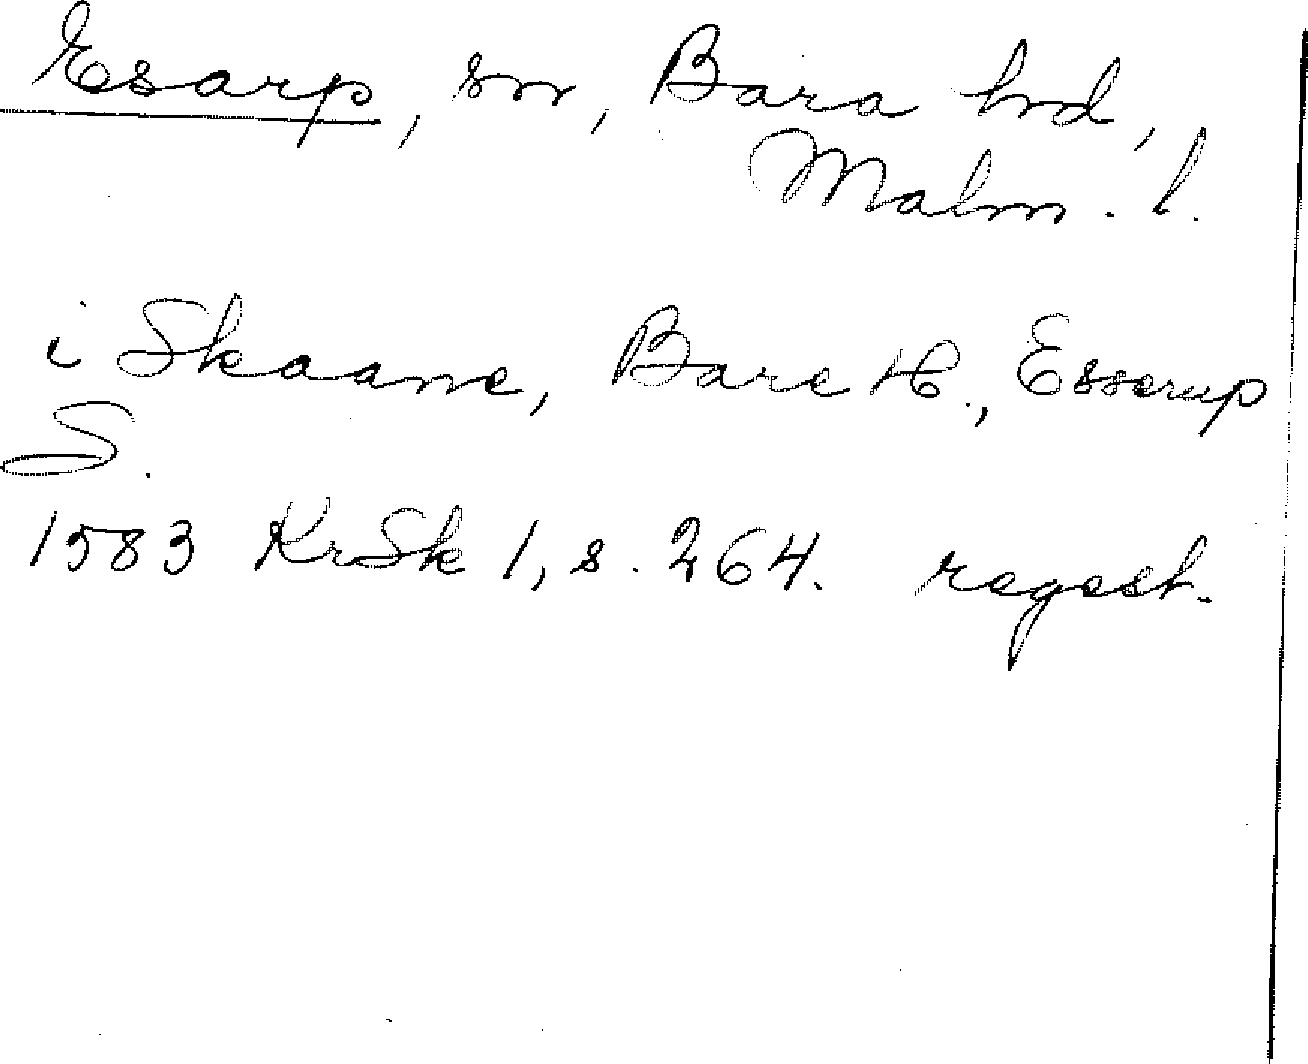 Esarp, sn, Bara hd,
Malm. l.
i Skaane, Bare H., Esserup
S.
1583 KrSk 1, s. 264. regest.